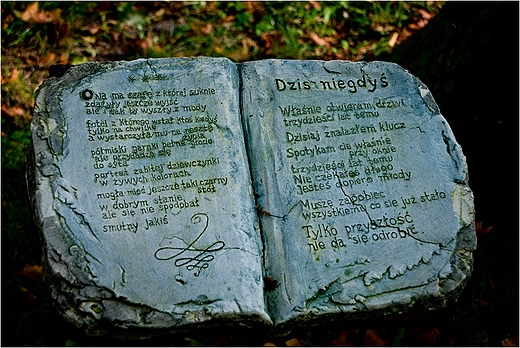 * * *
Ona ma szafę z której suknie
zdążyły jeszcze wyjść
ale i tak by wyszły z mody
fotel z którego wstał ktoś kiedyś
tylko na chwilkę
a wystarczyła mu na resztę
półmiski garnki pełne
ale przyjmuje się
do syta
portret zabitej dziewczynki
w żywych kolorach
mogła mieć jeszcze taki czarny
stół
w dobrym stanie
ale się nie spodobał
smutny jakiś
Dziś niegdyś
Właśnie otwieram drzwi
trzydzieści lat temu
Dzisiaj znalazłem klucz
Spotykam cię właśnie
przy bramie
trzydzieści lat temu
Nie czekałeś długo
jesteś dopiero młody
Muszę zapobiec
wszystkiemu co się już stało
Tylko przyszłość
nie da się odrobić